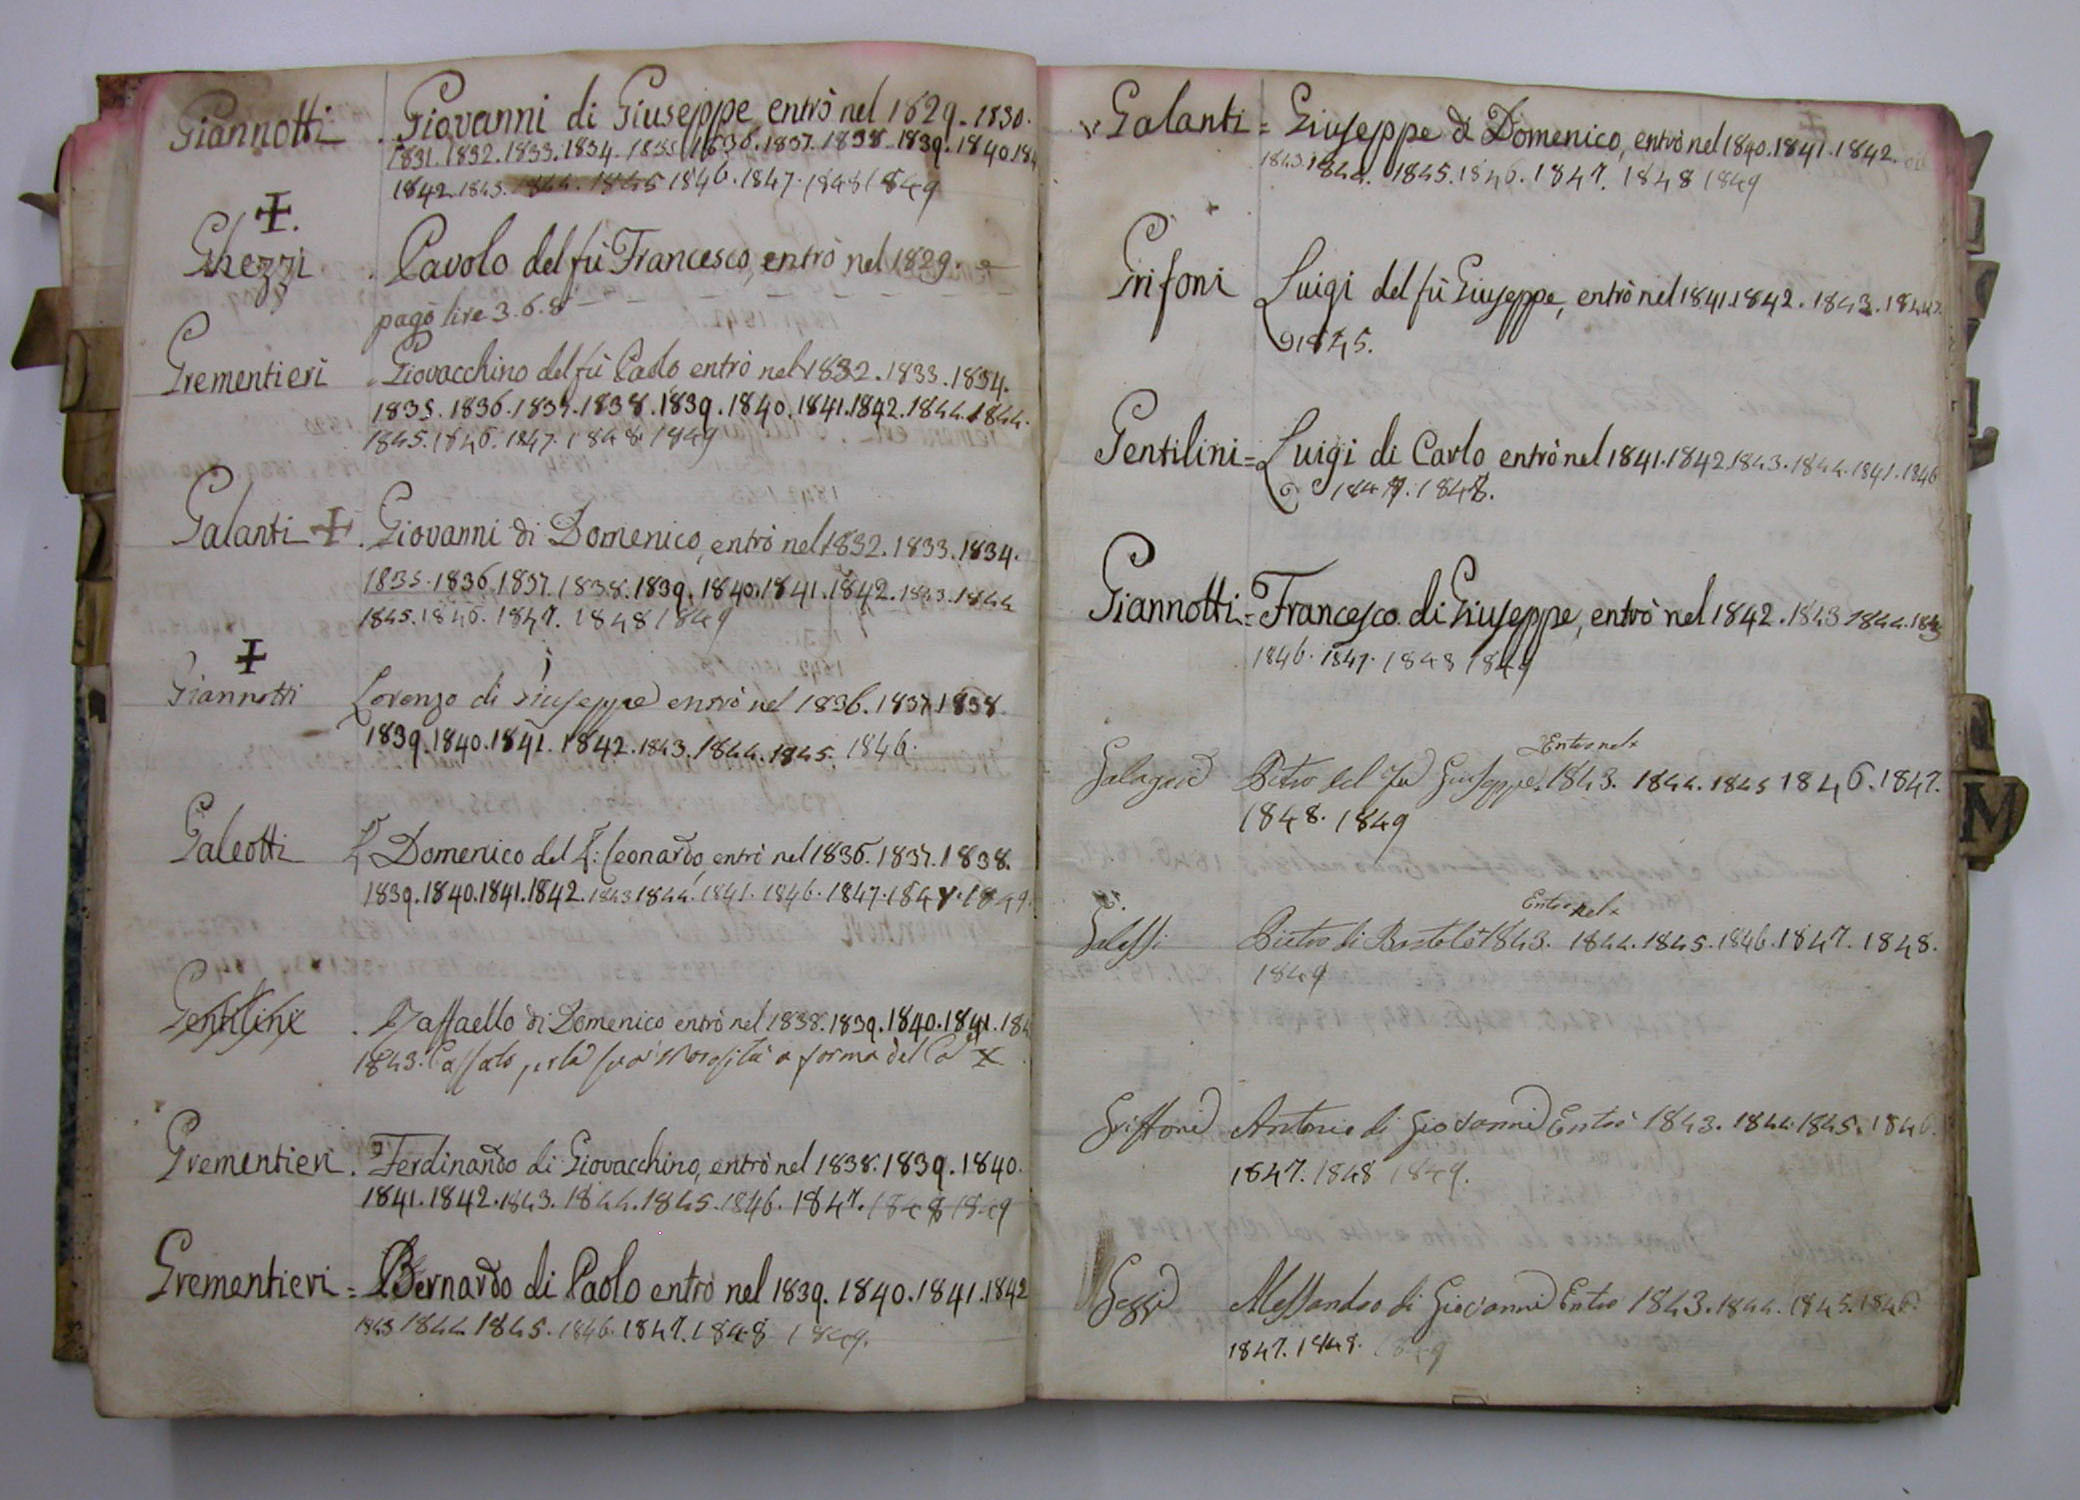 Giannotti . Giovanni di Giuseppe entrò nel 1829. 1830.
1831. 1832. 1833. 1834. 1835 1836. 1837. 1838. 1839. 1840. 184
1842. 1843. 1844. 1845 1846. 1847. 1848 1849
Ghezzi . Pavolo del fù Francesco, entrò nel 1829.
pagò lire 3.6.8
Grementieri . Giovacchino del fù Paolo entrò nel 1832. 1833. 1834.
1835. 1836. 1837. 1838. 1839. 1840. 1841. 1842. 1844. 1844.
1845. 1846. 1847. 1848. 1849
Galanti . Giovanni di Domenico, entrò nel 1832. 1833. 1834.
1835. 1836. 1837. 1838. 1839. 1840. 1841. 1842. 1843. 1844
1845. 1846. 1847. 1848 1849
Giannotti Lorenzo di Giuseppe entrò nel 1836. 1837. 1838.
1839. 1840. 1841. 1842. 1843. 1844. 1845. 1846.
Galeotti Domenico del Leonardo, entrò nel 1836. 1837. 1838.
1839. 1840. 1841. 1842. 1843 1844. 1841. 1846. 1847. 1848. 1849.
Gentilini . Raffaello di Domenico entrò nel 1838. 1839. 1840. 1841. 184
1843. Cassato per la sua Morosità a forma del
Grementieri . Ferdinando di Giovacchino, entrò nel 1838. 1839. 1840.
1841. 1842. 1843. 1844. 1845. 1846. 1847. 1848 1849
Grementieri = Bernardo di Paolo entrò nel 1839. 1840. 1841. 1842
1843 1844 1845. 1846. 1847. 1848 1849.
Galanti = Giuseppe di Domenico, entrò nel 1840. 1841. 1842.
1843. 1844. 1845. 1846. 1847. 1848 1849
Grifoni Luigi del fù Giuseppe, entrò nel 1841. 1842. 1843. 1844.
1845.
Gentilini = Luigi di Carlo entrò nel 1841. 1842. 1843. 1844. 1841. 1846
1847. 1848.
Giannotti = Francesco di Giuseppe, entrò nel 1842. 1843 1844. 1845
1846. 1847. 1848 1849
Entro nel
Pietro del fu Giuseppe 1843. 1844. 1845 1846. 1847.
1848. 1849
Entro nel
Galessi Pietro di Bartolo 1843. 1844. 1845. 1846. 1847. 1848.
1849
Griffoni Antonio di Giovanni Entrò 1843. 1844. 1845. 1846.
1847. 1848 1849.
Gezzi Alessandro di Giovanni Entro 1843. 1844. 1845. 1846.
1847. 1848. 1849
M